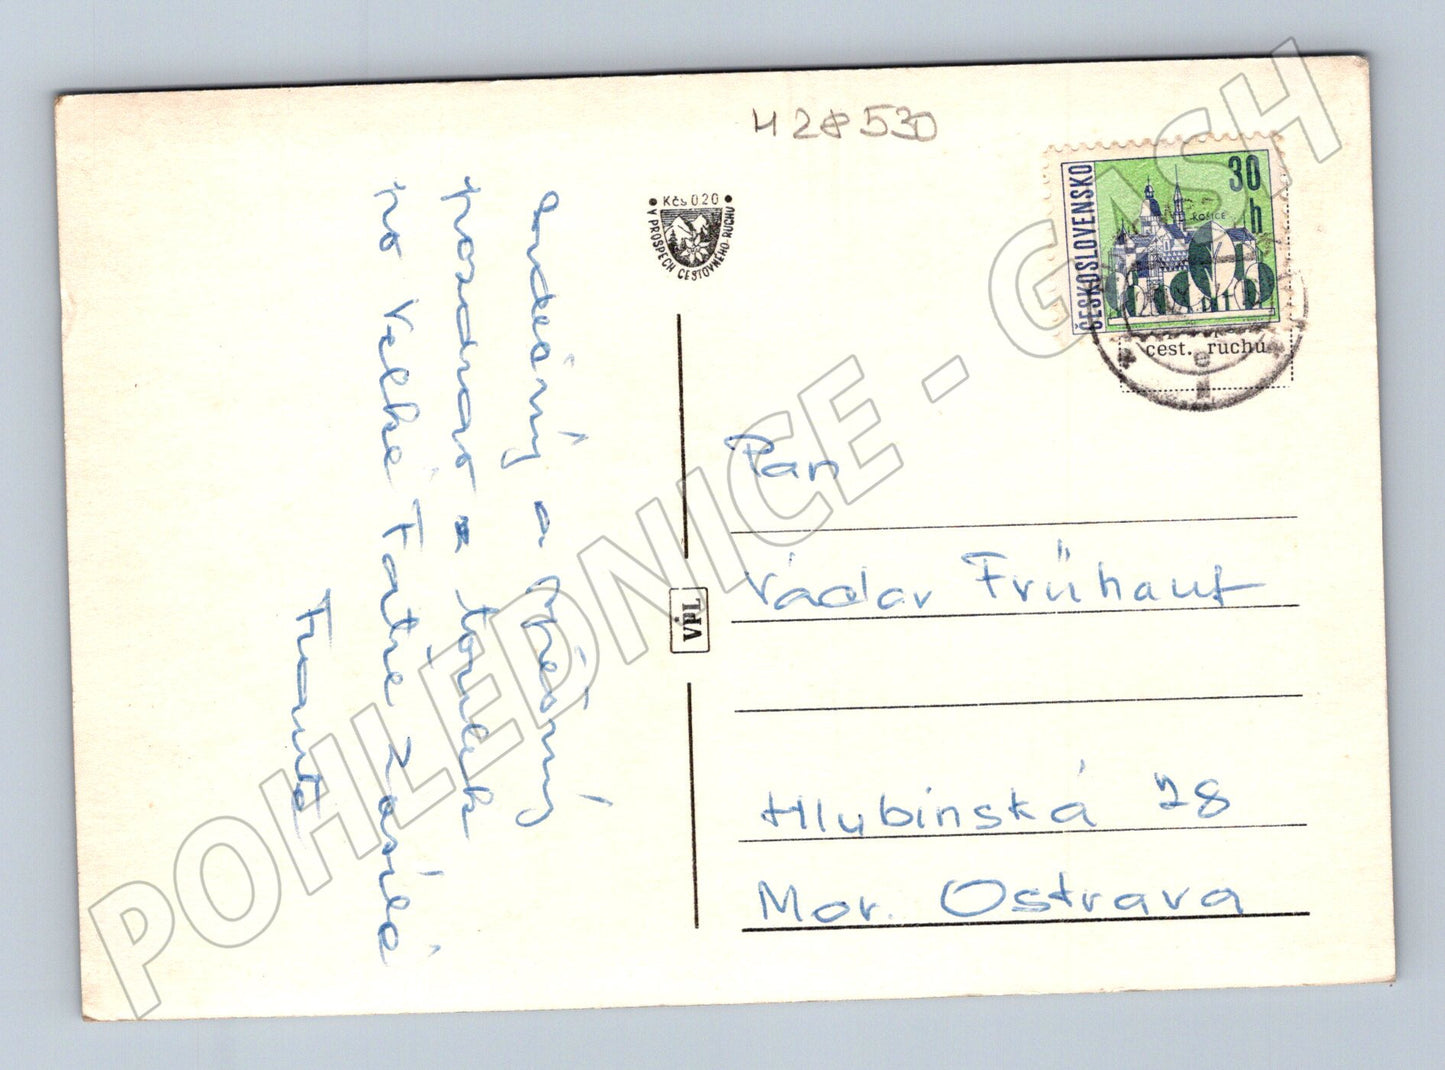 428530
Kčs 0.20
V PROSPĚCH CESTOVNÉHO RUCHU
ČESKOSLOVENSKO
30 h
KOŠICE
cest. ruchu
e
Srdečný a upřímný
pozdrav z túlek
po Velké Fatře zasílá
Franta
VPL
Pan
Václav Frühauf
Hlubinská 28
Mor. Ostrava
POHLEDNICE - GASH